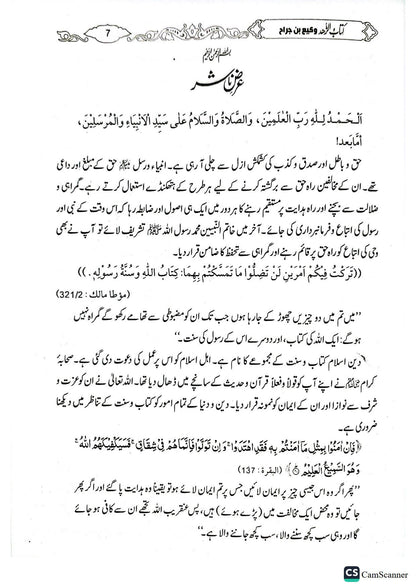 کتاب الزھد وکیع بن جراح
7
بسم اللہ الرحمن الرحیم
عرضِ ناشر
اَلْحَمْدُ لِلّٰهِ رَبِّ الْعٰلَمِيْنَ، وَالصَّلَاةُ وَالسَّلَامُ عَلٰى سَيِّدِ الْاَنْبِيَاءِ وَالْمُرْسَلِيْنَ،
اَمَّا بَعد!
حق و باطل اور صدق و کذب کی کشمکش ازل سے چلی آرہی ہے۔ انبیاء و رسل ﷺ حق کے مبلغ اور داعی
تھے۔ ان کے مخالفین راہ حق سے برگشتہ کرنے کے لیے ہر طرح کے ہتھکنڈے استعمال کرتے رہے۔ گمراہی و
ضلالت سے بچنے اور راہ ہدایت پر مستقیم رہنے کا ہر دور میں ایک ہی اصول اور ضابطہ رہا کہ اس وقت کے نبی اور
رسول کی اتباع و فرمانبرداری کی جائے۔ آخر میں خاتم النبیین محمد رسول اللہ ﷺ تشریف لائے تو آپ نے بھی
وحی کی اتباع کو راہ حق پر قائم رہنے اور گمراہی سے تحفظ کا ضامن قرار دیا۔
((تَرَكْتُ فِيْكُمْ اَمْرَيْنِ لَنْ تَضِلُّوْا مَا تَمَسَّكْتُمْ بِهِمَا: كِتَابُ اللّٰهِ وَسُنَّةُ رَسُوْلِهِ .))
(مؤطا مالك: 321/2)
”میں تم میں دو چیزیں چھوڑ کے جارہا ہوں جب تک ان کو مضبوطی سے تھامے رکھو گے گمراہ نہیں
ہوگے: ایک اللہ کی کتاب، اور دوسرے اس کے رسول کی سنت۔“
دین اسلام کتاب و سنت کے مجموعے کا نام ہے۔ اہل اسلام کو اس پر عمل کی دعوت دی گئی ہے۔ صحابۂ
کرام نے اپنے آپ کو قولاً و فعلاً قرآن و حدیث کے سانچے میں ڈھال دیا تھا۔ اللہ تعالیٰ نے ان کو عزت و
شرف سے نوازا اور ان کے ایمان کو نمونہ قرار دیا۔ دین و دنیا کے تمام امور کو کتاب و سنت کے تناظر میں دیکھنا
ضروری ہے۔
﴿فَاِنْ اٰمَنُوْا بِمِثْلِ مَاۤ اٰمَنْتُمْ بِهٖ فَقَدِ اهْتَدَوْا ۚ وَ اِنْ تَوَلَّوْا فَاِنَّمَا هُمْ فِيْ شِقَاقٍ ۚ فَسَيَكْفِيْكَهُمُ اللّٰهُ ۚ
وَ هُوَ السَّمِيْعُ الْعَلِيْمُ﴾ (البقرة: 137)
”پھر اگر وہ اس جیسی چیز پر ایمان لائیں جس پر تم ایمان لائے ہو تو یقیناً وہ ہدایت پا گئے اور اگر پھر
جائیں تو وہ محض ایک مخالفت میں (پڑے ہوئے) ہیں، پس عنقریب اللہ تجھے ان سے کافی ہو جائے
گا اور وہی سب کچھ سننے والا، سب کچھ جاننے والا ہے۔“
CS CamScanner